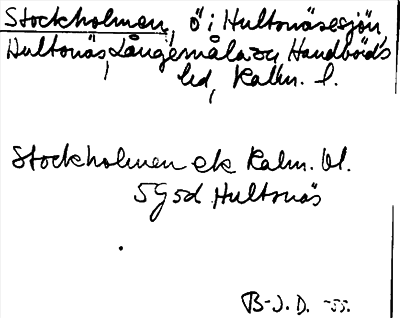 Stockholmen, ö i Hultonässjön,
Hultonäs, Långemåla sn, Handbörds
hd, Kalm. l.
Stockholmen ek Kalm. bl.
5 G 5d Hultonäs
B-J. D. -55.